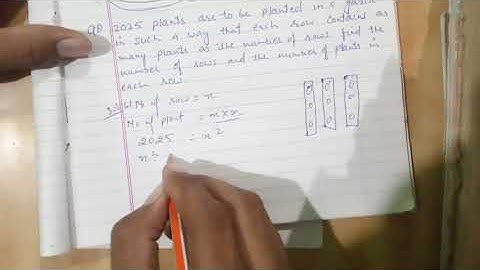 Q8 2025 plants are to be planted in a garden
in such a way that each row contains as
many plants as the number of rows. Find the
number of rows and the number of plants in
each row.
Let No of row = x
No of plant = x × x
2025 = x²
x² =